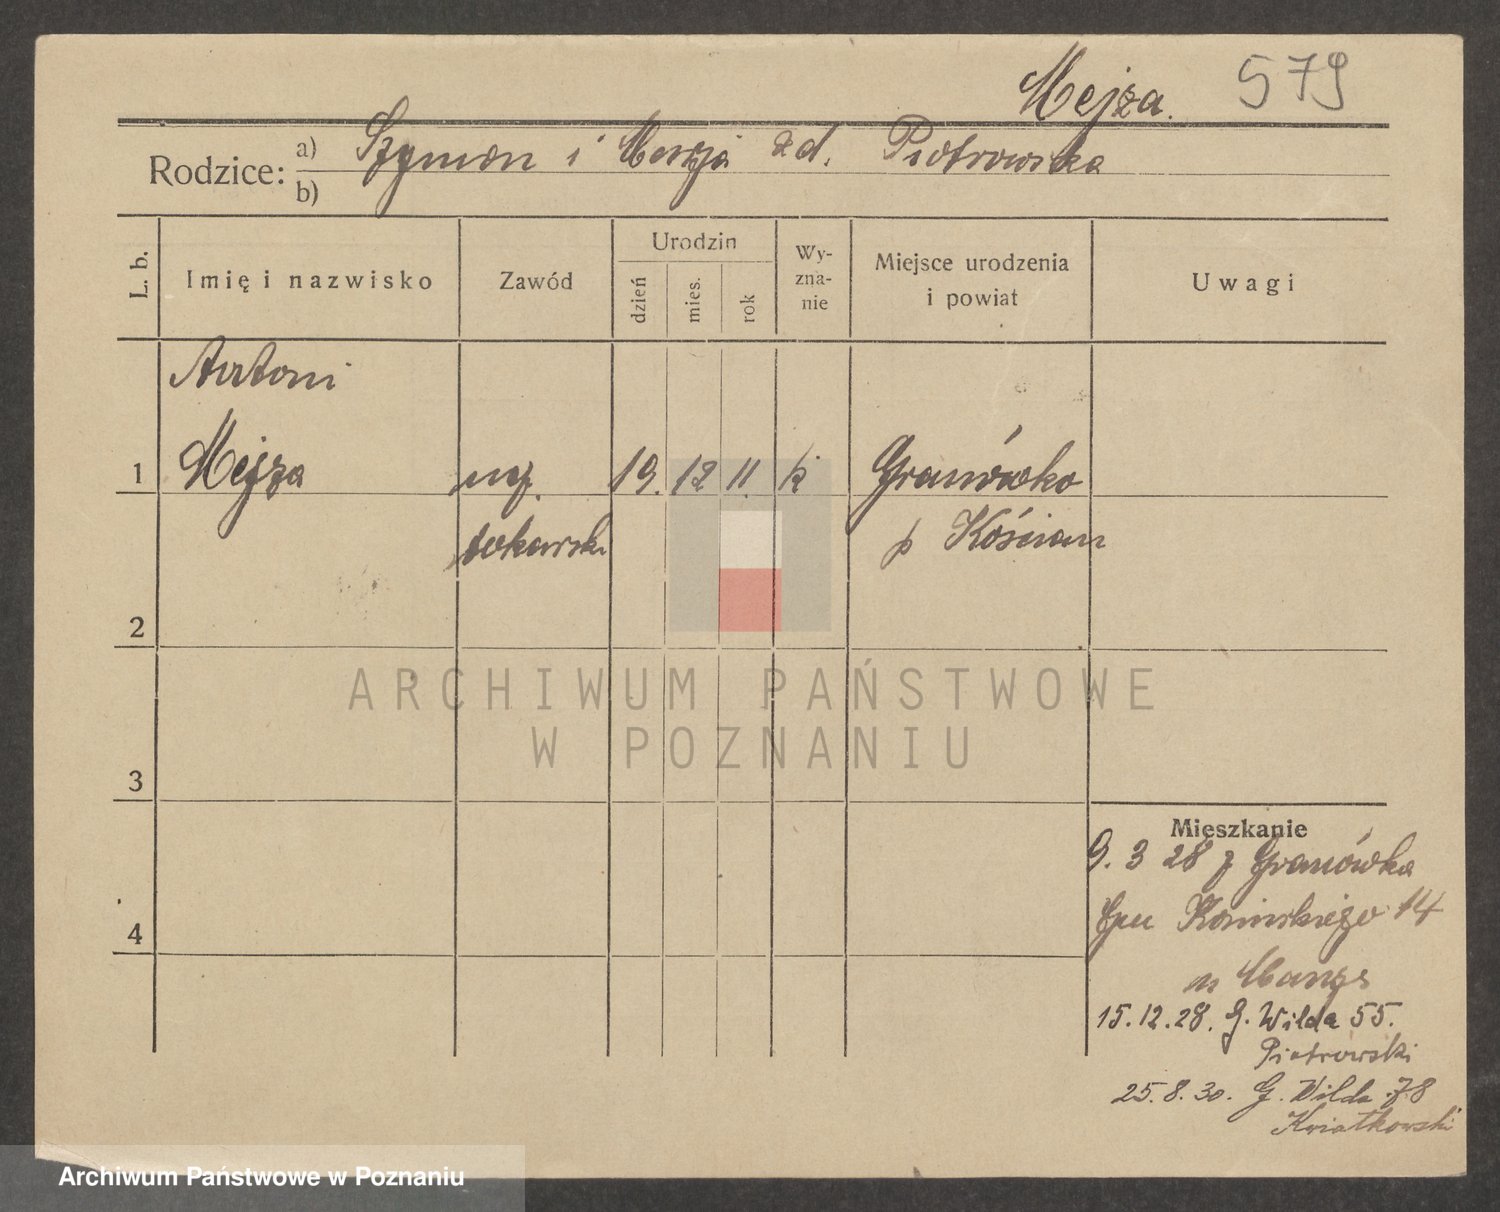 Mejza. 579
Rodzice: a) Szymon i Maryja zd. Piotrowska
b)
L. b.
Imię i nazwisko
Zawód
Urodzin
dzień
mies.
rok
Wy-
zna-
nie
Miejsce urodzenia
i powiat
Uwagi
Antoni
1 Mejza ucz. 19. 12 11. k Granówko
tokarski p Kościan
2
ARCHIWUM PAŃSTWOWE
W POZNANIU
3
Mieszkanie
9. 3 28 z Granówka
14
4
15.12.28. G. Wilda 55.
Piotrowski
25.8.30. G. Wilda 78
Kwiatkowski
Archiwum Państwowe w Poznaniu